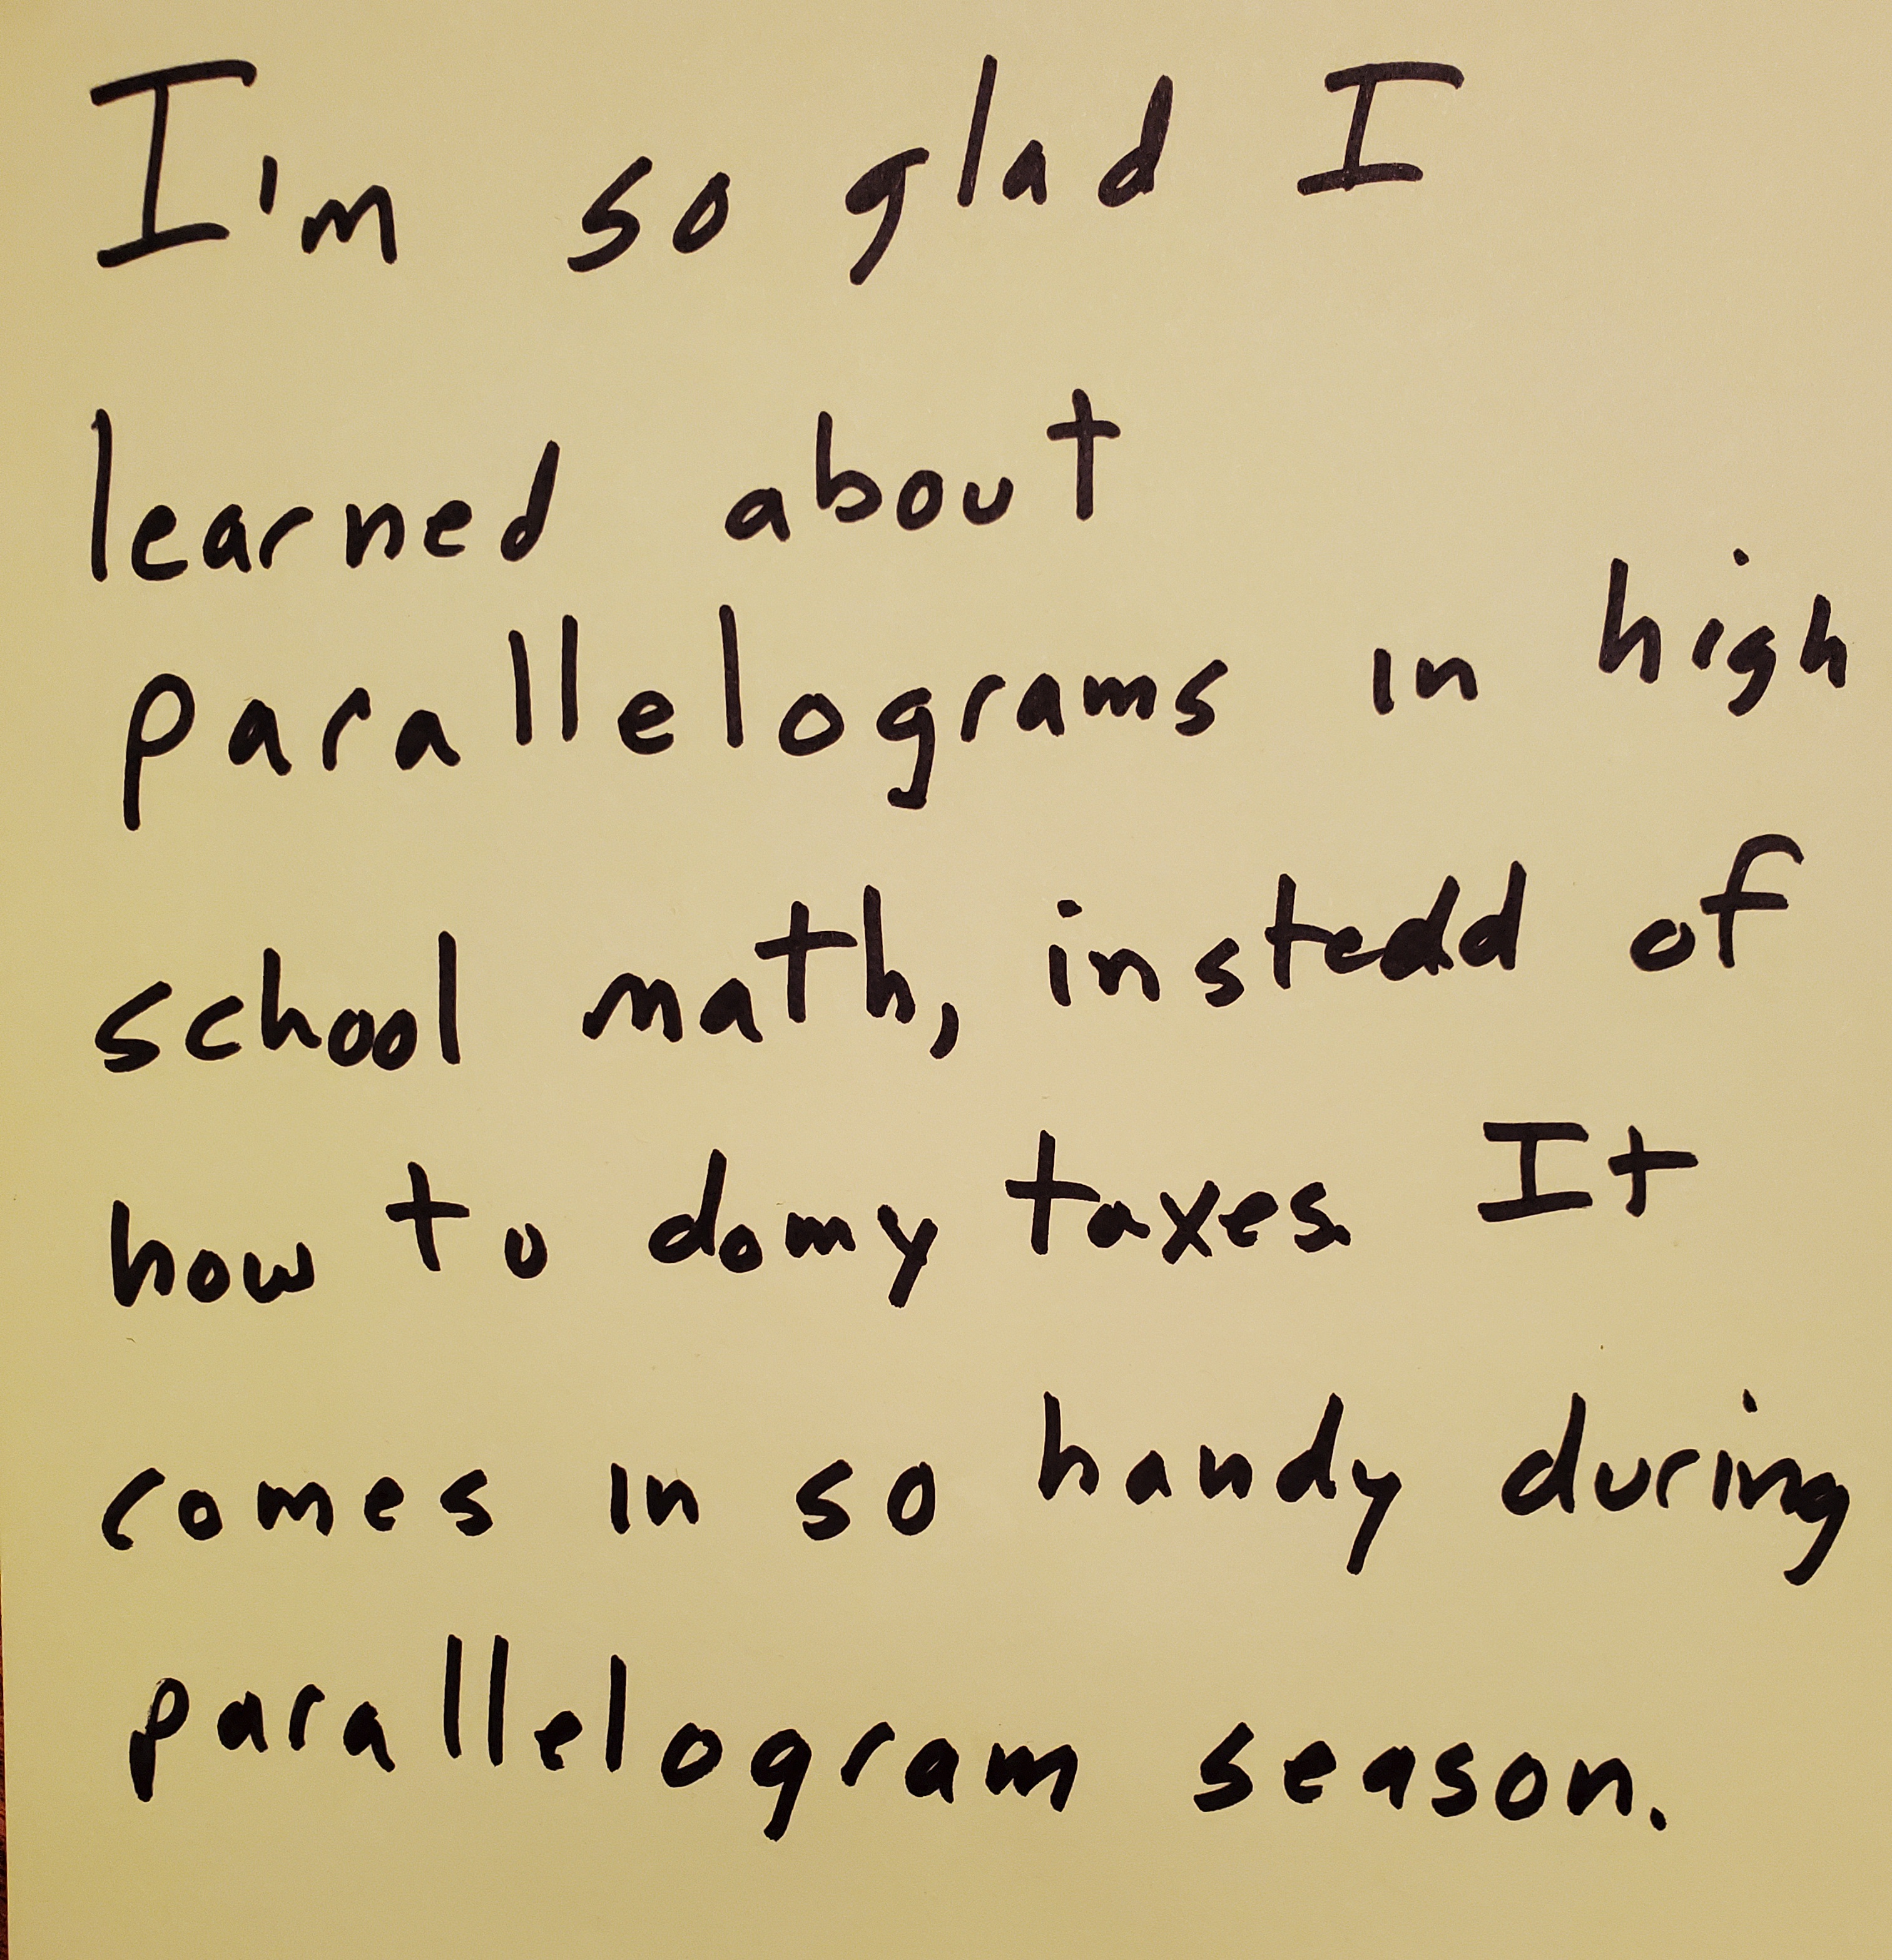 I'm so glad I
learned about
parallelograms in high
school math, instedd of
how to do my taxes. It
comes in so handy during
parallelogram season.